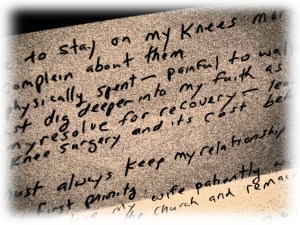 to stay on my knees mor
complain about them
hysically spent - painful to wal
st dig deeper into my faith as
my resolve for recovery - lea
knee surgery and its cost be
ust always keep my relationship
first priority. wife patiently w
my the church and remai